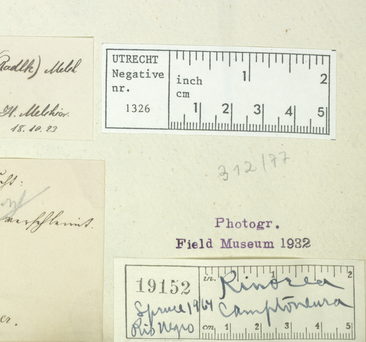 (Radlk) Melch
H. Melchior.
18.10.23
verschleimt.
er.
UTRECHT
Negative
nr.
1326
inch
cm
1 2
1 2 3 4 5
312/77
Photogr.
Field Museum 1932
19152
Spruce 1964
Rio Negro
in. 1 2
Rinorea
camptoneura
cm 1 2 3 4 5